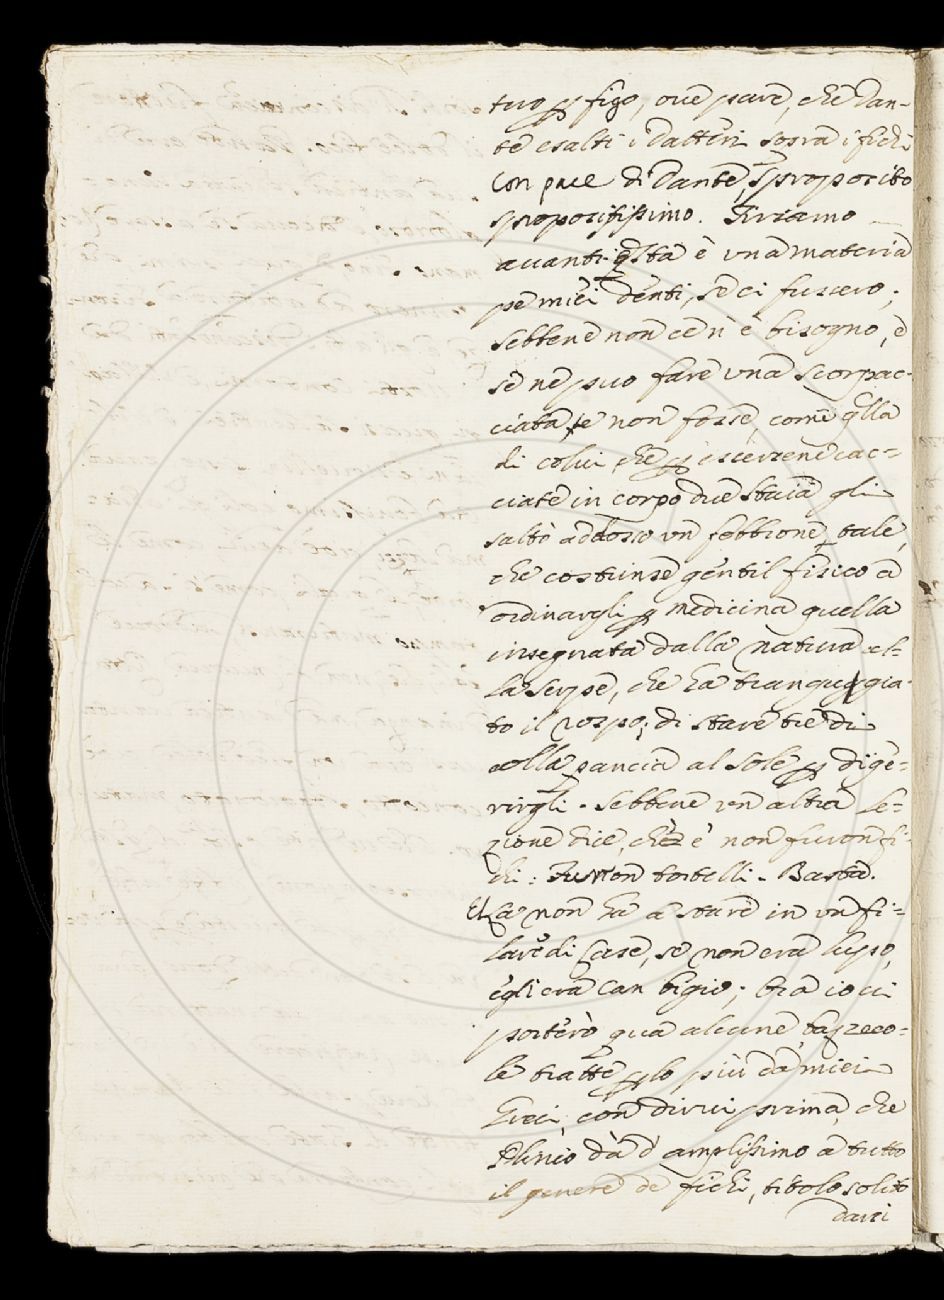 tero p figo, ove pare, che Dan-
te esalti i Datteri sopra i fichi
Con pace di Dante, sproposito
spropositissimo. Tiriamo
avanti. qsta è una materia
pe miei denti, se ci fussero;
sebbene non ce n'è bisogno, e
se ne puo fare una scorpac-
ciata, se non fosse, come qlla
di colui, che p essersene cac-
ciate in corpo due staia gli
saltò addosso un febbrone tale,
che costrinse gentil fisico a
ordinargli p medicina quella
insegnata dalla natura al-
la Serpe, che ha trangugia-
to il rospo; di stare tre di
colla pancia al sole p dige-
rirgli. Sebbene un altra le-
zione dice, che e' non furon fi-
chi: Furon tortelli. Basta.
Ella non ha a stare in un fi-
lare di Case, se non era lupo,
egli era Can bigio; Ora io ci
porterò qua alcune bazzeco-
le tratte p lo più da' miei
Greci, con dirvi prima, che
Plinio dà d' amplissimo a tutto
il genere de' fichi, titolo solito
darsi